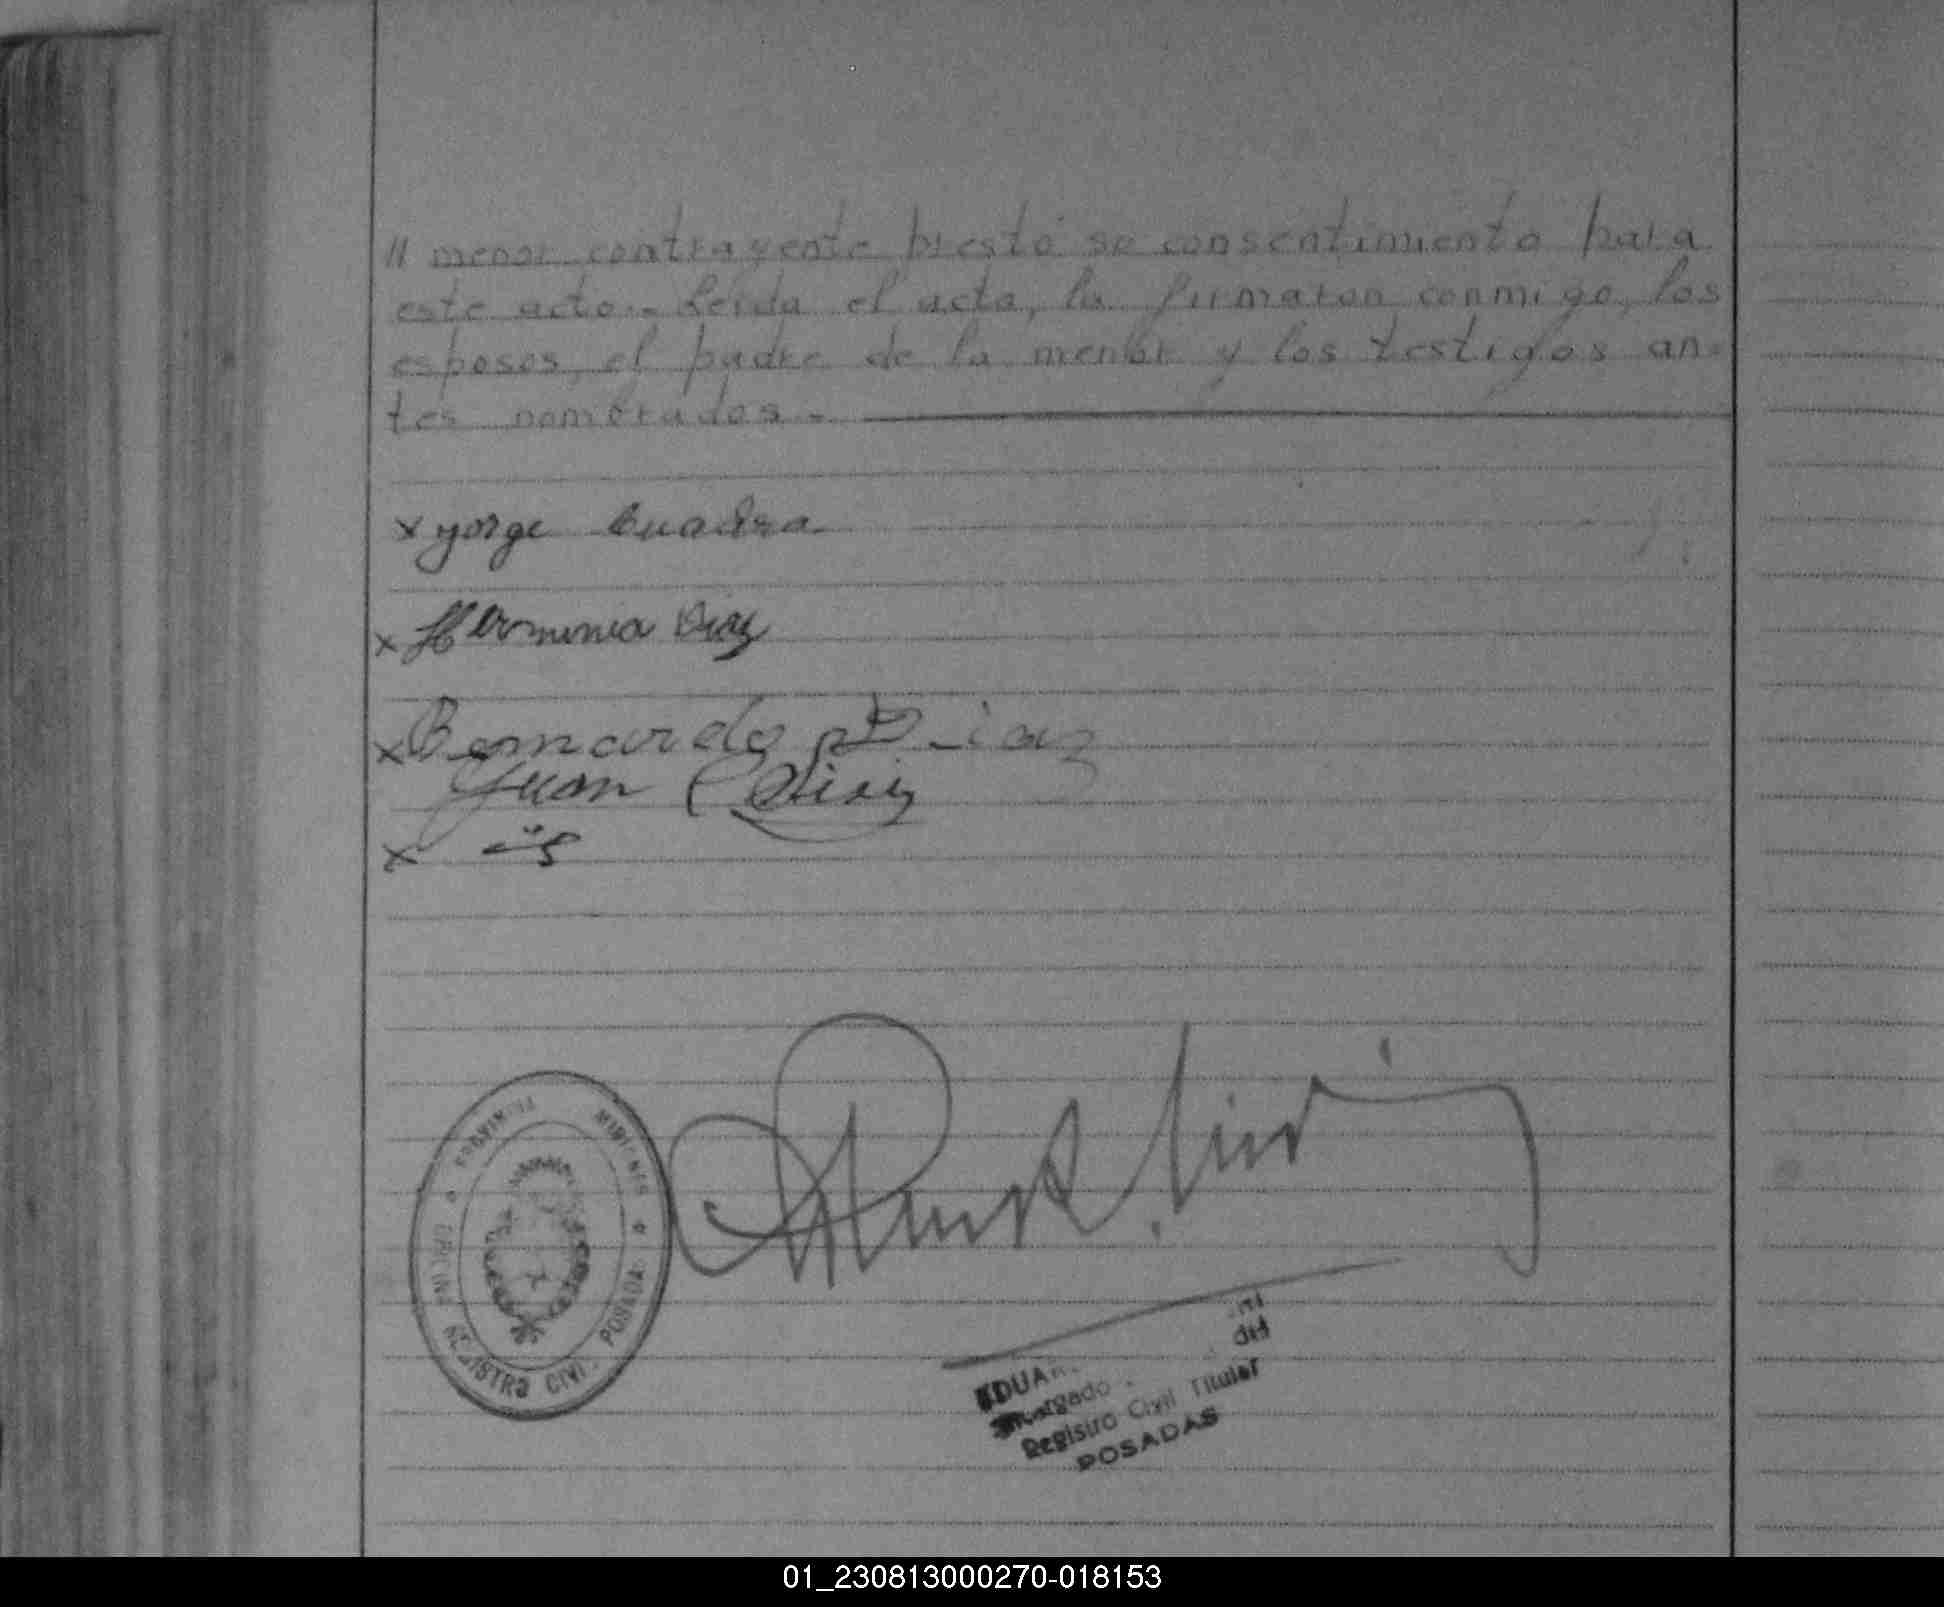 // menor contrayente prestó su consentimiento para
este acto.- Leída el acta, la firmaron conmigo, los
esposos, el padre de la menor y los testigos an-
tes nombrados.-
x yorge Cuadra
x Herminia Diaz
x Bernardo Diaz
Juan
x
PROVINCIA MISIONES
OFICINA REGISTRO CIVIL POSADAS
EDUAR
Encargado del
Registro Civil Titular
POSADAS
01_230813000270-018153